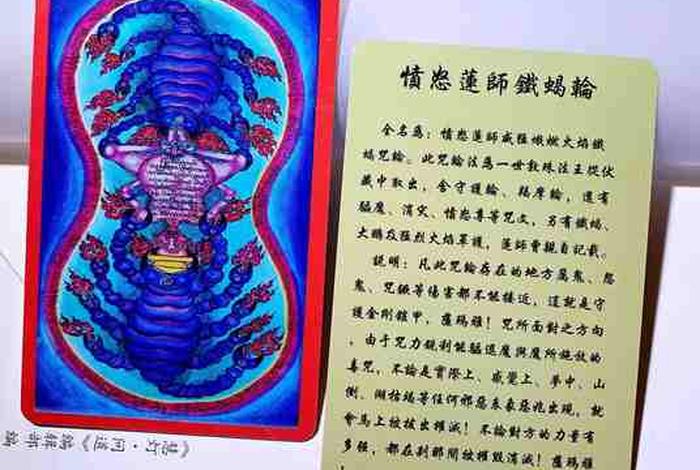 憤怒蓮師鐵蝎輪
全名為：憤怒蓮師威猛熾燃火焰鐵
蝎咒輪。此咒輪法為一世敦珠法王從伏
藏中取出，含守護輪、羯摩輪，還有
猛魔、消災、憤怒尊等咒文，另有鐵蝎、
大鵬及猛烈火焰罩護，蓮師曾親自記載。
說明：凡此咒輪存在的地方厲鬼、怨
鬼、咒鏃等傷害都不能接近，這就是守
護金剛鎧甲，薩瑪雅！咒所面對之方向
，由于咒力銳利能猛退魔與魔所施放的
毒咒，不論是實際上、感覺上、夢中、山
樹、湖枯竭等任何邪惡表象惡兆出現，就
會馬上被拔出摧滅！不論對方的力量有
多強，都在刹那間被摧毀消滅！薩瑪雅
《慧灯·问道》